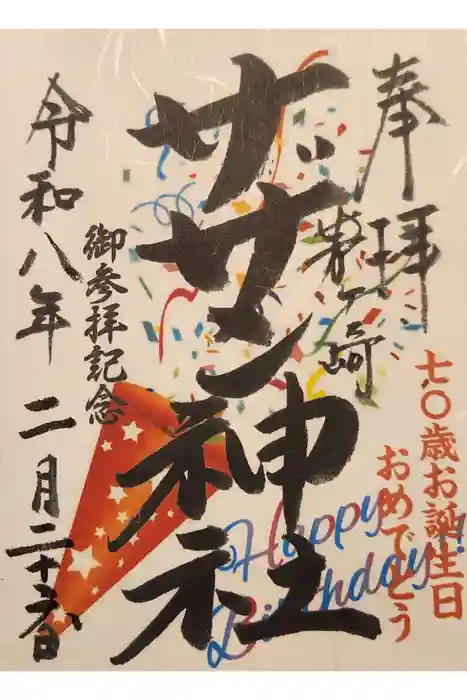 奉拝
茅ヶ崎
ザザン神社
七〇歳お誕生日
おめでとう
御参拝記念
令和八年 二月二十六日
Happy
Birthday!!